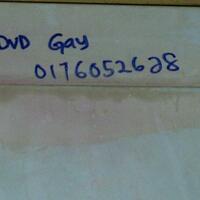 DVD Gay
0176052628